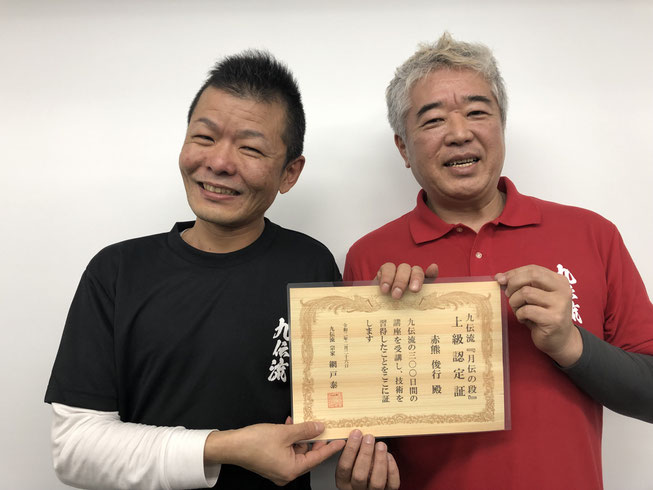 九伝流『月伝の段』
上級認定証
赤熊 俊行 殿
九伝流の三〇〇日間の
講座を受講し、技術を
習得したことをここに証
します
九伝流 宗家 網戸 泰一
九伝流
九伝流